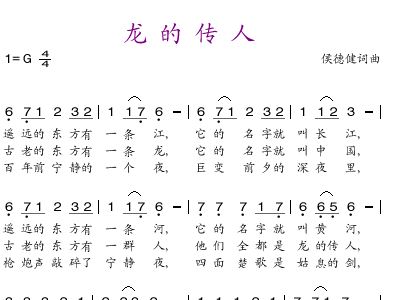 龙的传人
1=G 4/4 侯德健词曲
6 7 1 2 3 2 | 1 1 7 6 – | 6 7 1 2 3 2 | 1 1 2 3 – |
遥远的东方有一条江，它的名字就叫长江，
古老的东方有一条龙，它的名字就叫中国，
百年前宁静的一个夜，巨变前夕的深夜里，
6 7 1 2 3 2 | 1 1 7 6 – | 7 7 7 1 7 | 6 6 5 6 – |
遥远的东方有一条河，它的名字就叫黄河，
古老的东方有一群人，他们全都是龙的传人，
枪炮声敲碎了宁静夜，四面楚歌是姑息的剑，